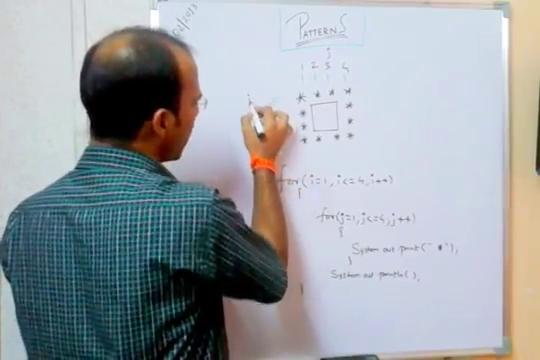 /02/2013
PATTERNS
j
1 2 3 4
* * * *
* *
* *
* * * *
for(i=1, i<=4, i++)
{
for(j=1, j<=4, j++)
{
System out print(" * "),
}
System out println( ),